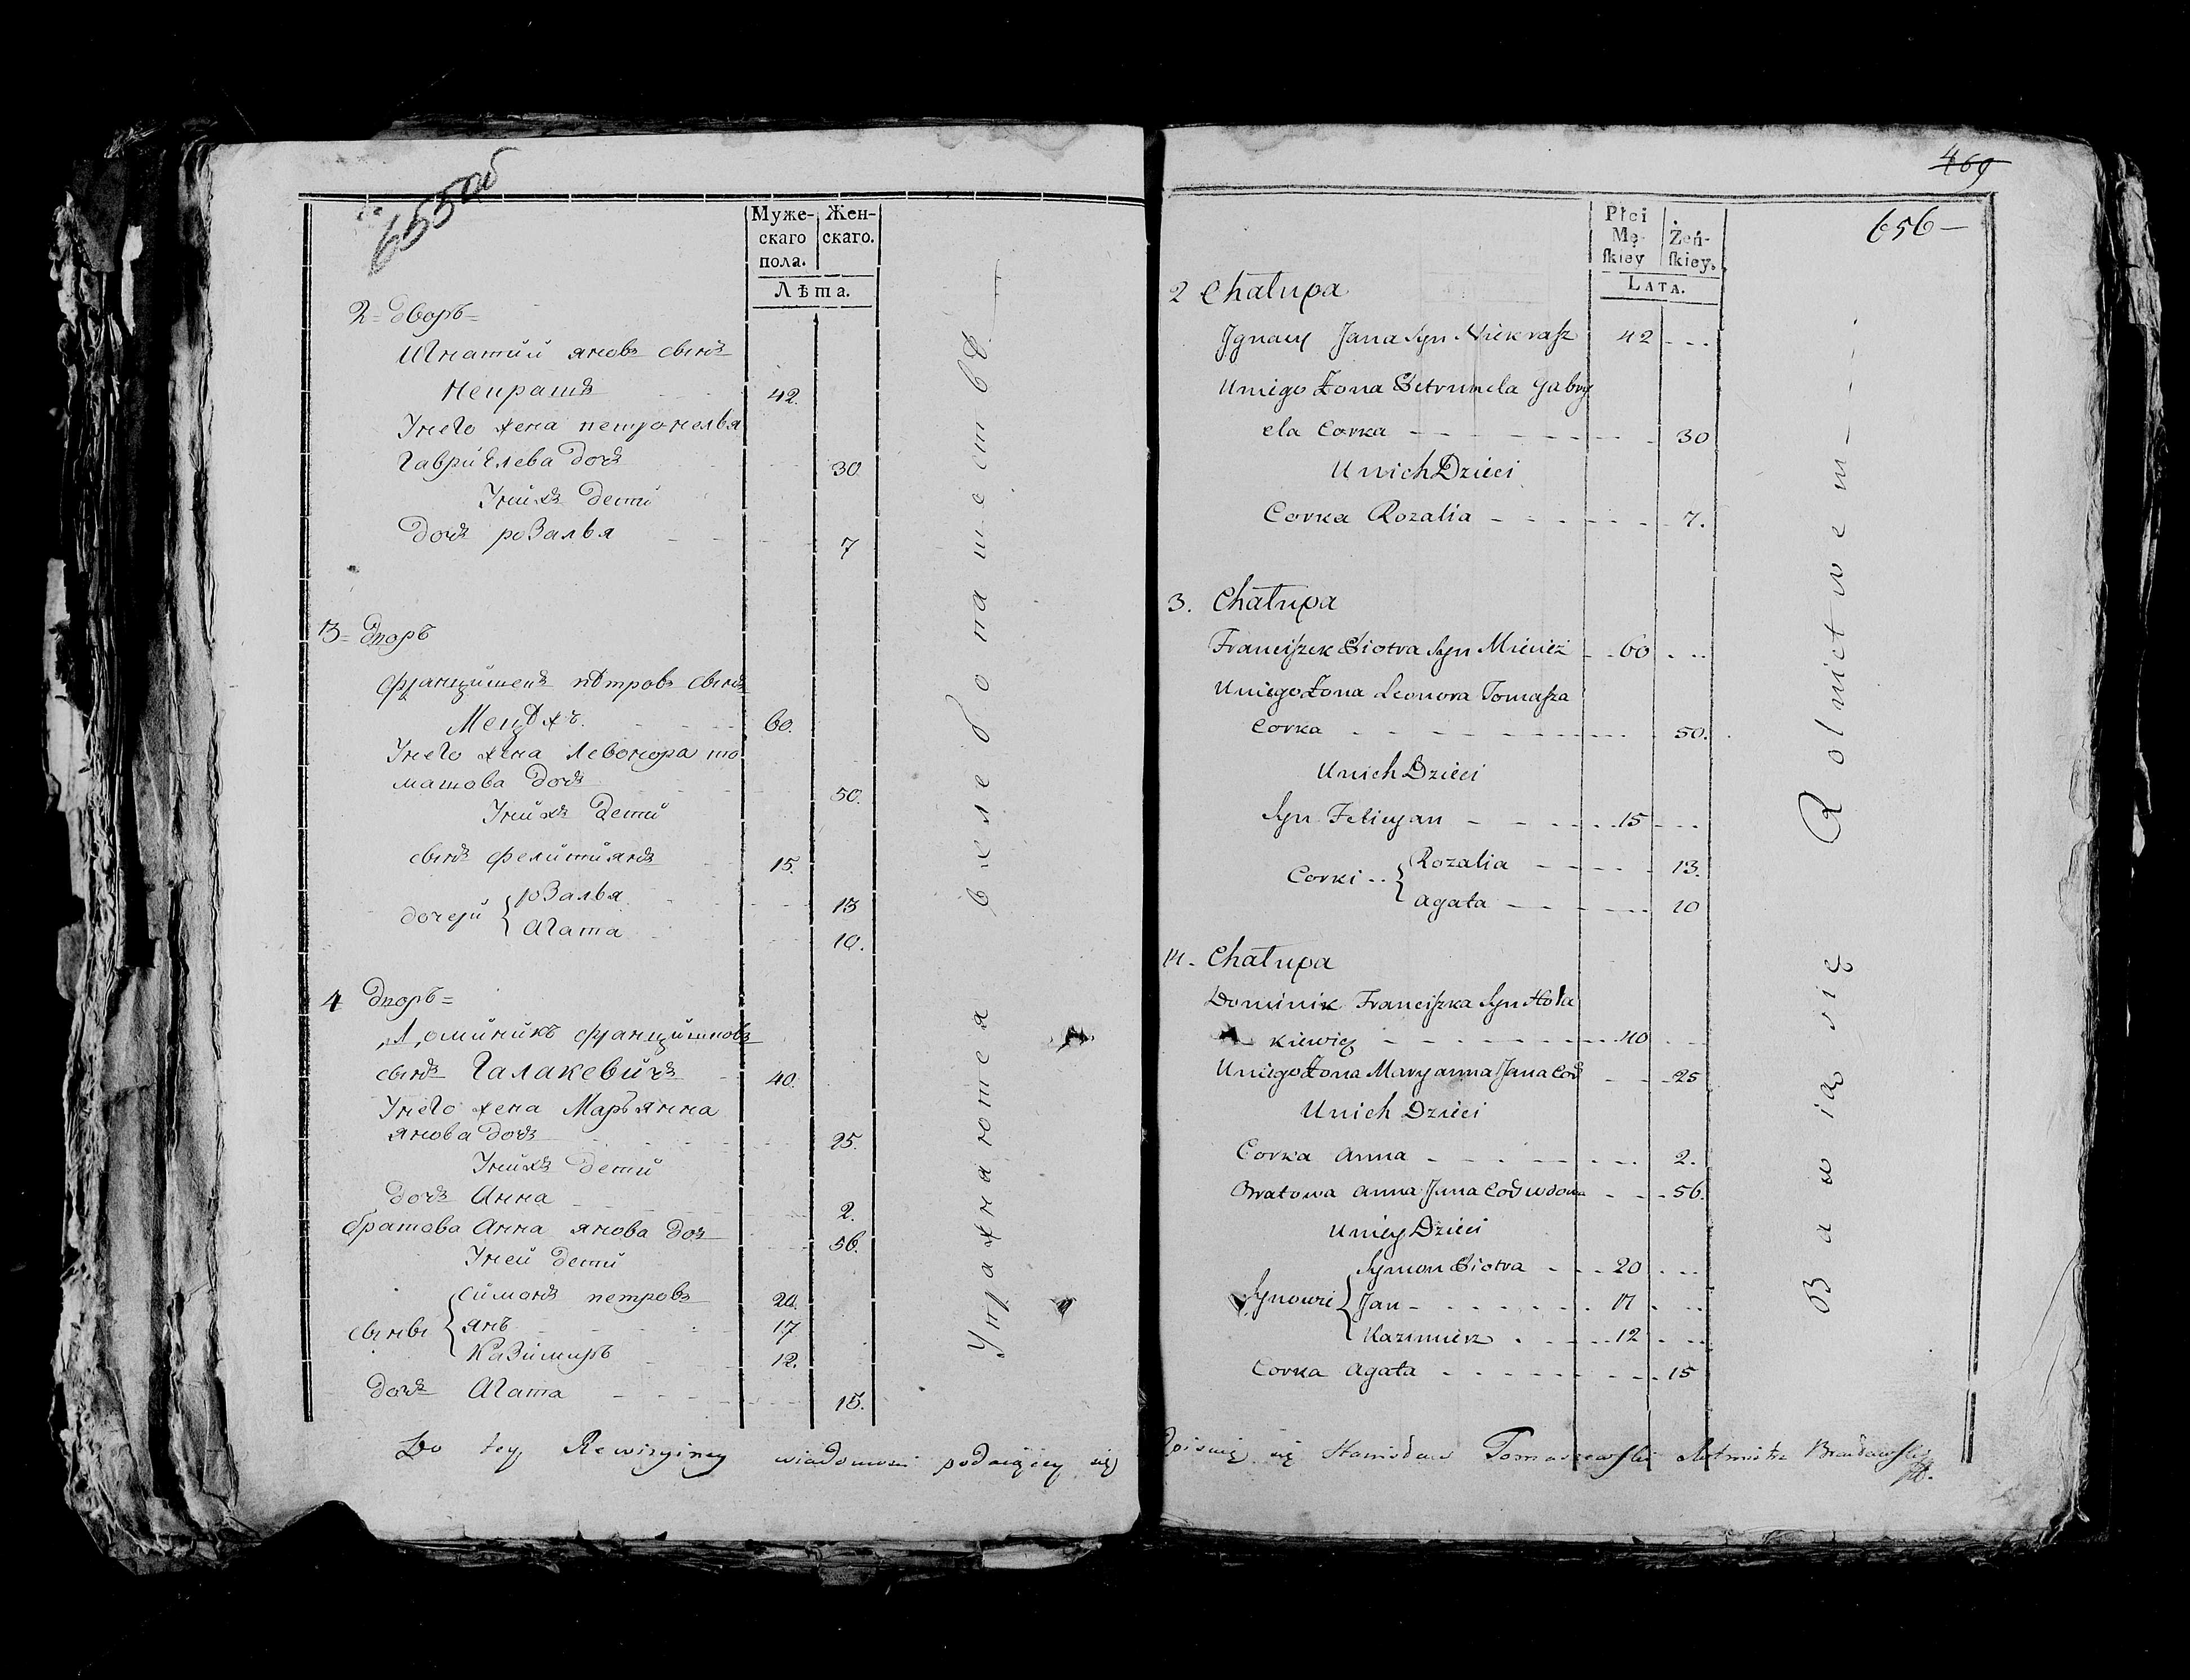 655 об
Муже-
скаго
пола.
Жен-
скаго.
Лѣта.
2 = дворъ =
Игнатий яновъ сынъ
Некрашъ 42.
Унего жена петронелья
Гавриелева дочь 30
Унихъ дети
дочь розалья 7
3 = дворъ
францишекъ пѣтровъ сынъ
60.
Унего жена Левонора то
машова дочь 50.
Унихъ дети
сынъ фелитиянъ 15.
дочери { розалья 13
Агата 10.
4 дворъ =
Доминикъ францишковъ
сынъ Галакевичъ 40.
Унего жена Марьянна
янова дочь 25.
Унихъ дети
дочь Анна 2.
братова Анна янова доч 56.
Уней дети
сыны { симонъ петровъ 20.
янъ 17
Казимиръ 12.
дочь Агата 15.
Упражнаются в хлебопашестве
469
656
Płci
Mę-
ſkiey
Żeń-
ſkiey.
Lata.
2 Chałupa
Jgnacy Jana Syn Niekrasz 42
Uniego Żona Petrunela Gabry
ela Corka 30
Unich Dzieci
Corka Rozalia 7.
3. Chałupa
Franciszek Piotra Syn Mieniez 60
Uniego Żona Leonora Tomasza
Corka 50.
Unich Dzieci
Syn Felicyan 15
Corki { Rozalia 13.
Agata 10
4. Chałupa
Dominik Franciszka Syn Hola
kiewicz 40
Uniego Żona Maryanna Jana Cor 25
Unich Dzieci
Corka Anna 2.
Bratowa Anna Jana Cor wdowa 56.
Uniey Dzieci
Synowie { Symon Piotra 20
Jan 17
Kazimierz 12
Corka Agata 15
Bawią się Rolnictwem
Do tey Rewizyiney wiadomosci podaiącey się
Pisuię się Stanisław Tomaszewski Rotmistrz Bracławski